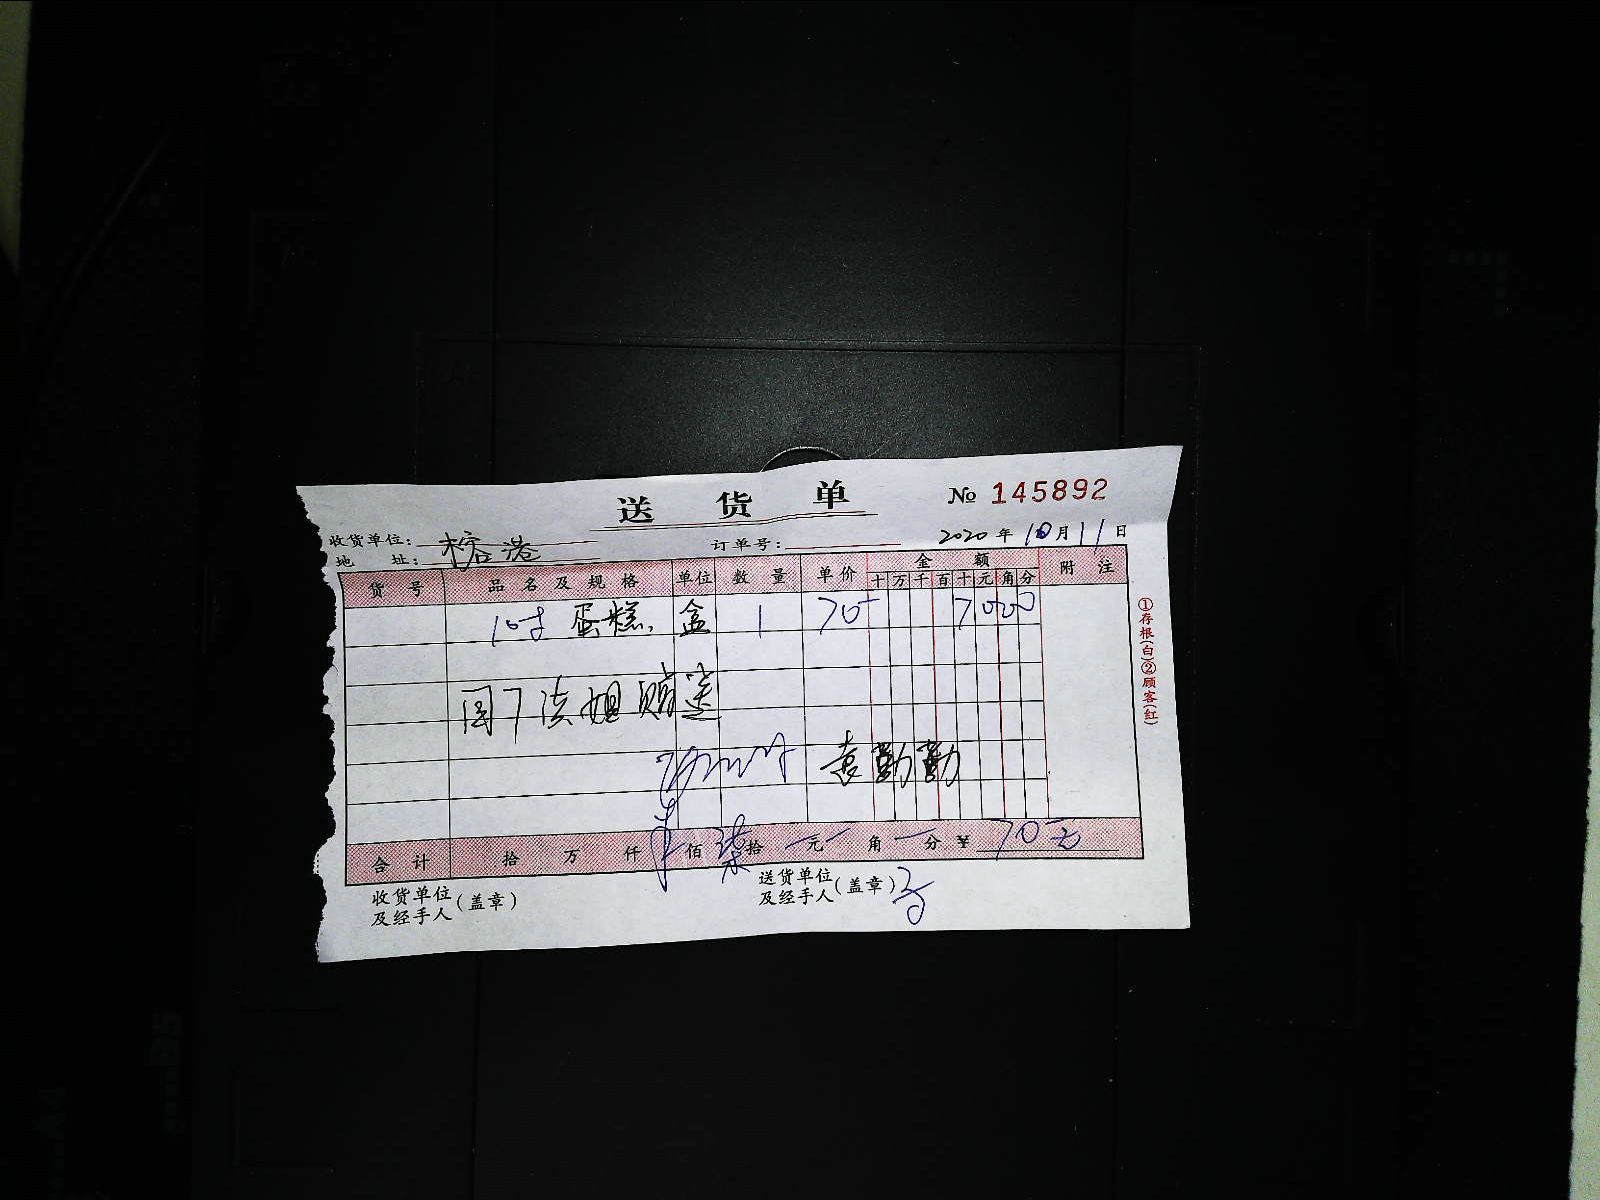 送货单 № 145892
收货单位: 榕港 订单号: 2020年10月11日
地 址:
货号 品名及规格 单位 数量 单价 金额 附注
十万千百十元角分
10寸 蛋糕. 盒 1 70- 7000
袁勤勤
合计 拾 万 仟 佰 柒拾 元 角 分 ¥ 70-元
收货单位及经手人(盖章) 送货单位及经手人(盖章)
①存根(白)②顾客(红)